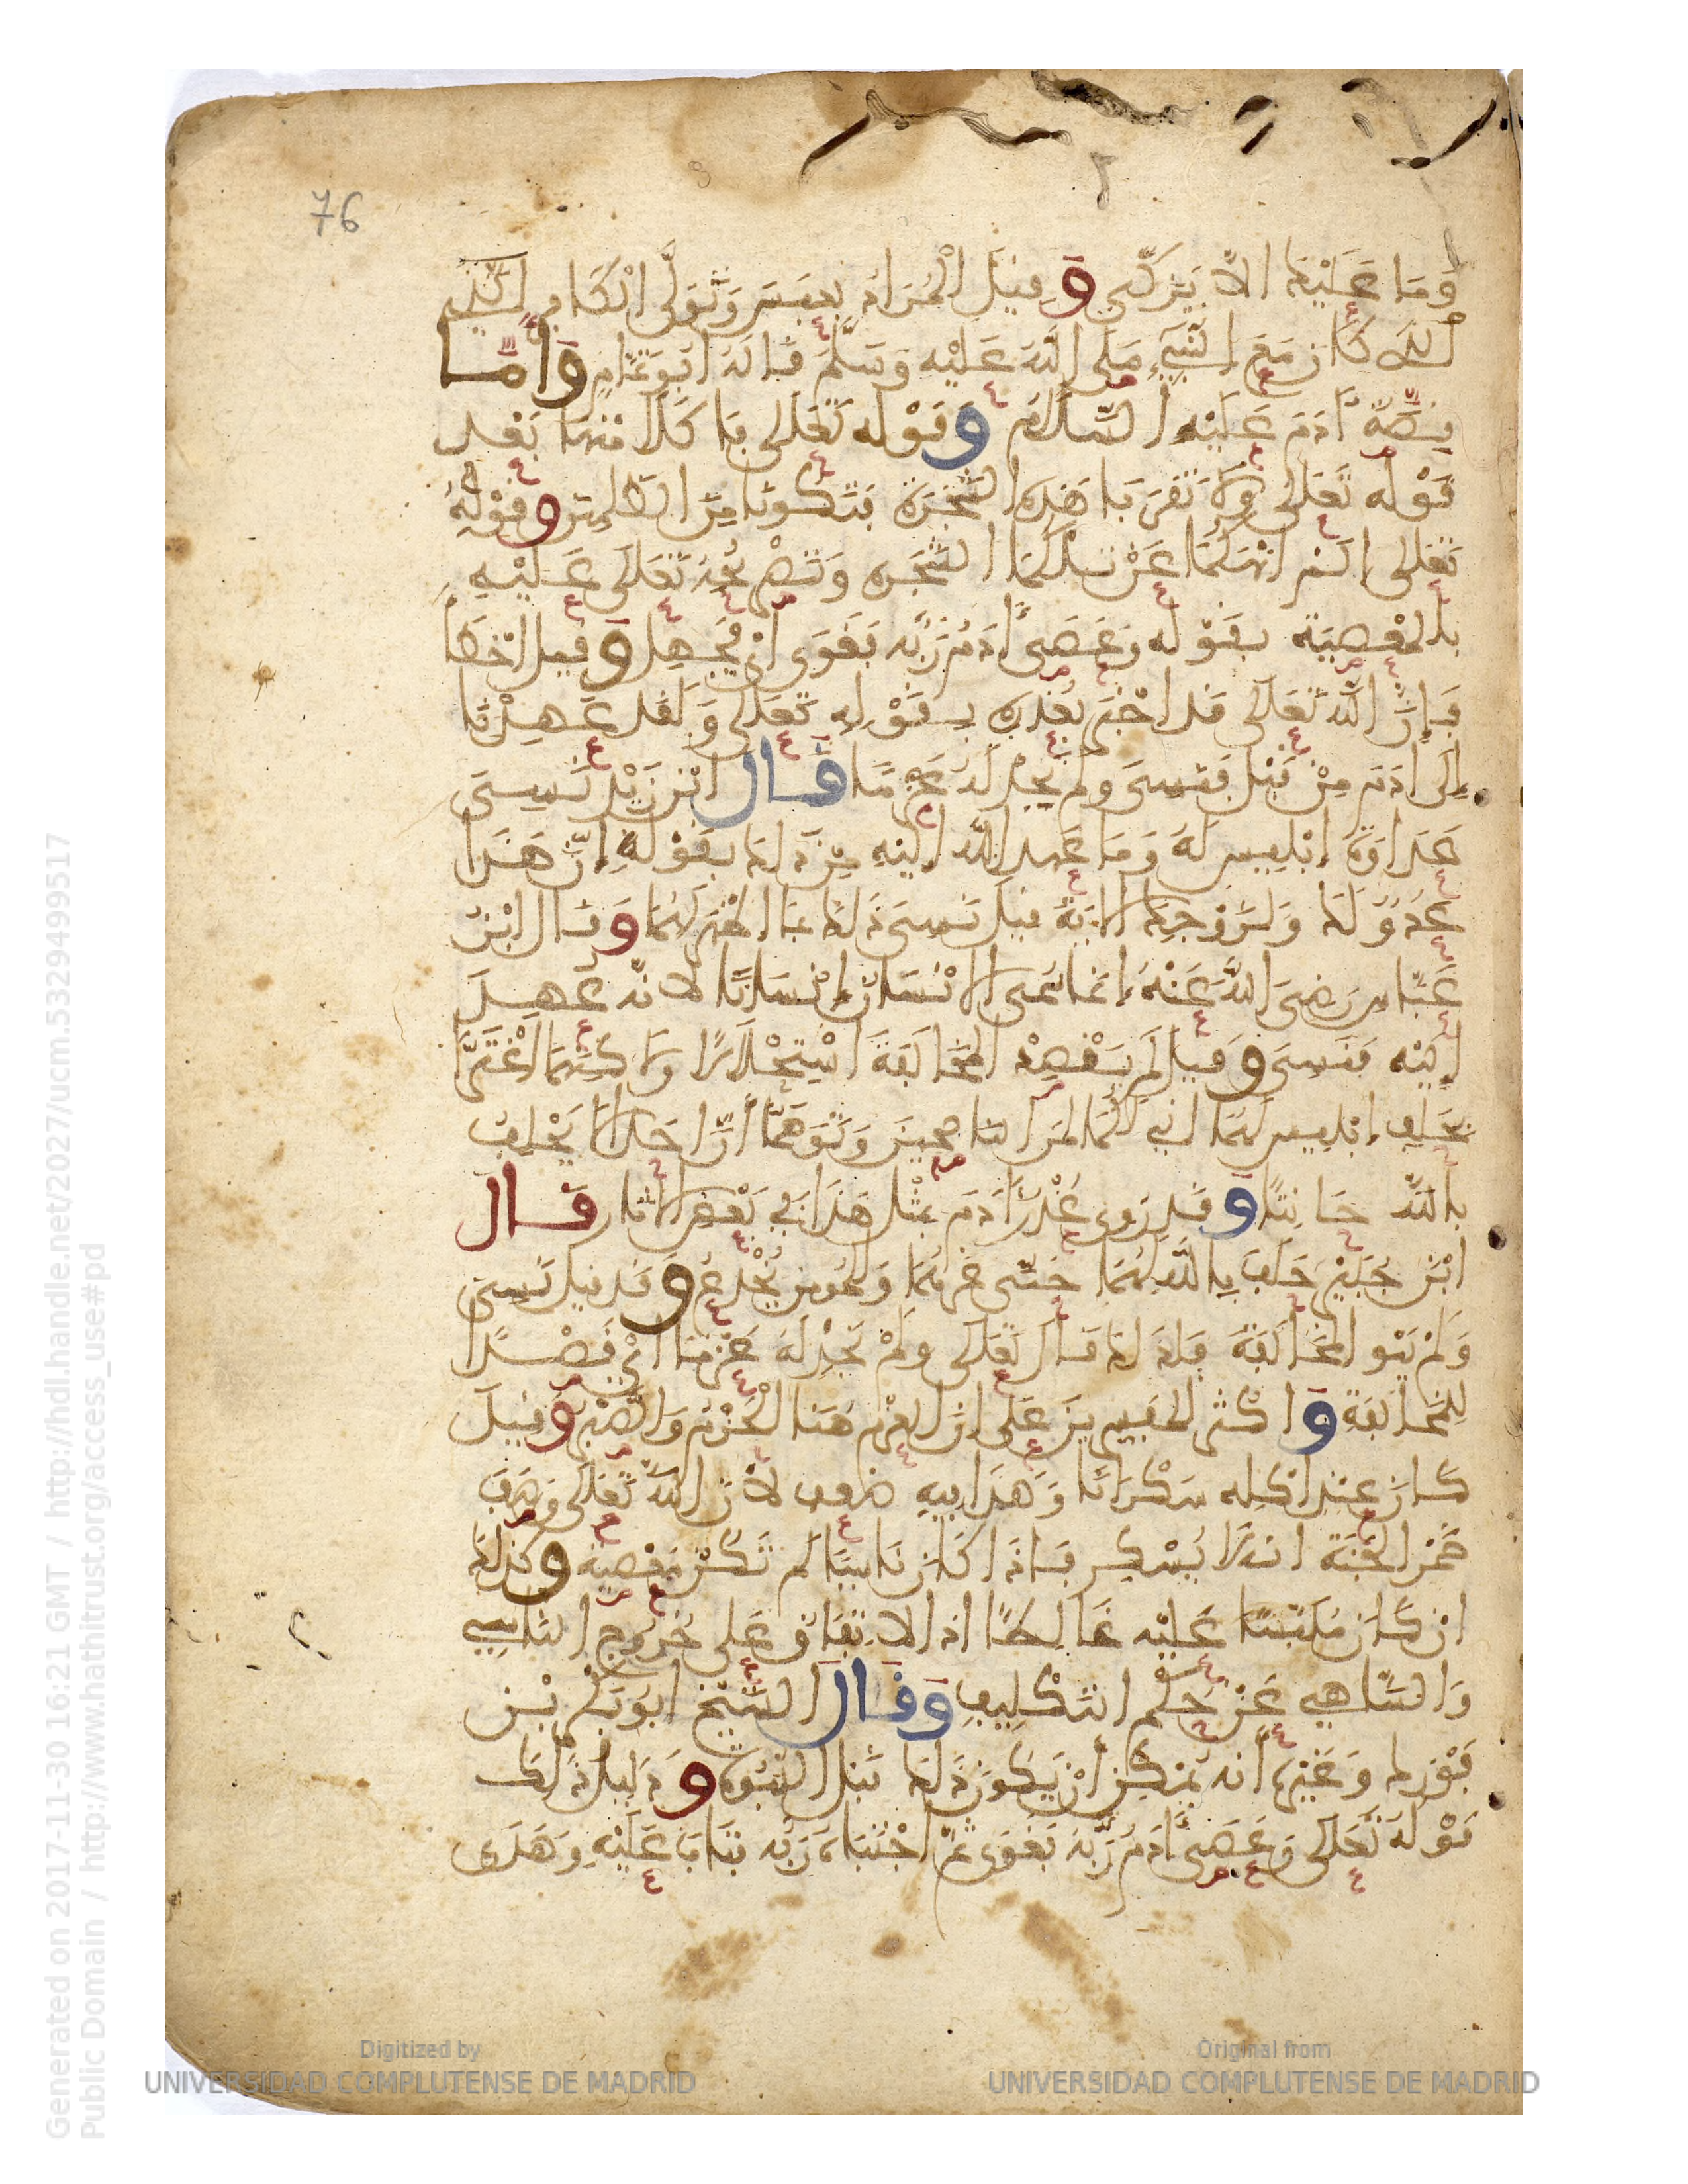 76
وَمَا عَلَيْكَ الَّا يَزَّكَّى وَقِيلَ الْمُرَادُ بِعَبَسَ وَتَوَلَّى الْكَافِرُ الَّذِي
كَانَ مَعَ النَّبِيِّ صَلَّى اللَّهُ عَلَيْهِ وَسَلَّمَ قَالَهُ ابُو تَمَّامٍ وَامَّا
قِصَّةُ آدَمَ عَلَيْهِ السَّلَامُ وَقَوْلُه تَعَلَى فَاكَلَا مِنْهَا بَعْدَ
قَوْلِه تَعَلَى وَلَا تَقْرَبَا هَذِهِ الشَّجَرَةَ فَتَكُونَا مِنَ الظَّلِمِينَ وَقَوْلِهِ
تَعَلَى الَمْ انْهَكُمَا عَنْ تِلْكُمَا الشَّجَرَةِ وَتَصْرِيحُهُ تَعَلَى عَلَيْهِ
بِالْمَعْصِيَةِ بِقَوْلِه وَعَصَى آدَمُ رَبَّه فَغَوَى ايْ جَهِلَ وَقِيلَ اخْطَأَ
فَإِنَّ اللَّه تَعَلَى قَد اخْبَرَ بِعُذْرِهِ بِقَوْلِهِ تَعَلَى وَلَقَدْ عَهِدْنَا
إِلَى آدَمَ مِنْ قَبْلُ فَنَسِيَ وَلَمْ نَجِدْ لَهُ عَزْمًا قَالَ ابْن زَيْدٍ نَسِيَ
عَدَاوَةَ إبْلِيسَ لَهُ وَمَا عَهِدَ اللَّهُ الَيْهِ مِنْ ذَلِكَ بِقَوْلِهِ إنَّ هَذَا
عَدُوٌّ لَكَ وَلِزَوْجِكَ الايَةَ قِيلَ نَسِيَ ذَلِكَ بِمَا اظْهَرَ لَهُمَا وَقَالَ ابْنُ
عَبَّاسٍ رَضِيَ اللَّهُ عَنْهُ إنَّمَا سُمِّيَ الانْسَانُ إنْسَانًا لانَّه عُهِدَ
الَيْهِ فَنَسِيَ وَقِيلَ لَمْ يَقْصِدِ الْمُخَالَفَةَ اسْتِحْلَالًا وَلَكِنَّهُمَا اغْتَرَّا
بِحَلِفِ إبْلِيسَ لَهُمَا انِّي لَكُمَا لَمِنَ النَّاصِحِينَ وَتَوَهَّمَا أنَّ احَدًا لَا يَحْلِفُ
بِاللَّهِ حَانِثًا وَقَد رُوِيَ عُذْرُ آدَمَ بِمِثْلِ هَذَا فِي بَعْضِ الاثَارِ قَالَ
ابْنُ جُبَيْرٍ حَلَفَ بِاللَّهِ لَهُمَا حَتَّى غَرَّهُمَا وَالْمُومِنُ يُخْدَعُ وَقَد قِيلَ نَسِيَ
وَلَمْ يَنْوِ الْمُخَالَفَةَ فَلِذَلِكَ قَالَ تَعَلَى وَلَمْ نَجِدْ لَهُ عَزْمًا ايْ قَصْدًا
لِلْمُخَالَفَةِ وَاكْثَرُ الْمُفَسِّرِينَ عَلَى انَّ الْعَزْمَ هُنَا الْحَزْمُ وَالصَّبْرُ وَقِيلَ
كَانَ عِنْدَ اكْلِه سَكْرَانًا وَهَذَا فِيهِ ضَعْفٌ لانَّ اللَّه تَعَلَى وَصَفَ
خَمْرَ الْجَنَّةِ انَّهَا لَا تُسْكِرُ فَإذَا كَانَ نَاسِيًا لَمْ تَكُنْ مَعْصِيَةً وَكَذَلِكَ
انْ كَانَ مُلَبَّسًا عَلَيْهِ غَالِطًا اذِ الاتِّفَاقُ عَلَى خُرُوجِ النَّاسِي
وَالسَّاهِي عَنْ حُكْمِ التَّكْلِيفِ وَقَالَ الشَّيْخُ ابُو بَكْرِ بْنُ
فَوْرَكٍ وَغَيْرُه أنَّه يُمْكِنُ أنْ يَكُونَ ذَلِكَ قَبْلَ النُّبُوَّةِ وَدَلِيلُ ذَلِكَ
قَوْلُهُ تَعَلَى وَعَصَى آدَمُ رَبَّهُ فَغَوَى ثُمَّ اجْتَبَاهُ رَبُّه فَتَابَ عَلَيْهِ وَهَدَى
Generated on 2017-11-30 16:21 GMT / http://hdl.handle.net/2027/ucm.5329499517
Public Domain / http://www.hathitrust.org/access_use#pd
Digitized by
UNIVERSIDAD COMPLUTENSE DE MADRID
Original from
UNIVERSIDAD COMPLUTENSE DE MADRID